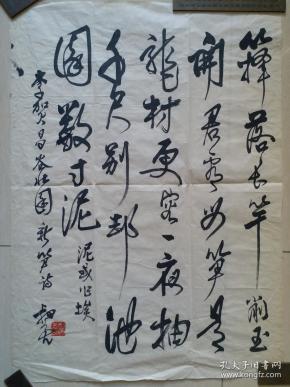 籜落长竿削玉
開君看母笋是
龍材更容一夜抽
千尺别却池
園數寸泥
泥或作埃
李贺昌谷北園新笋诗
孔夫子旧书网